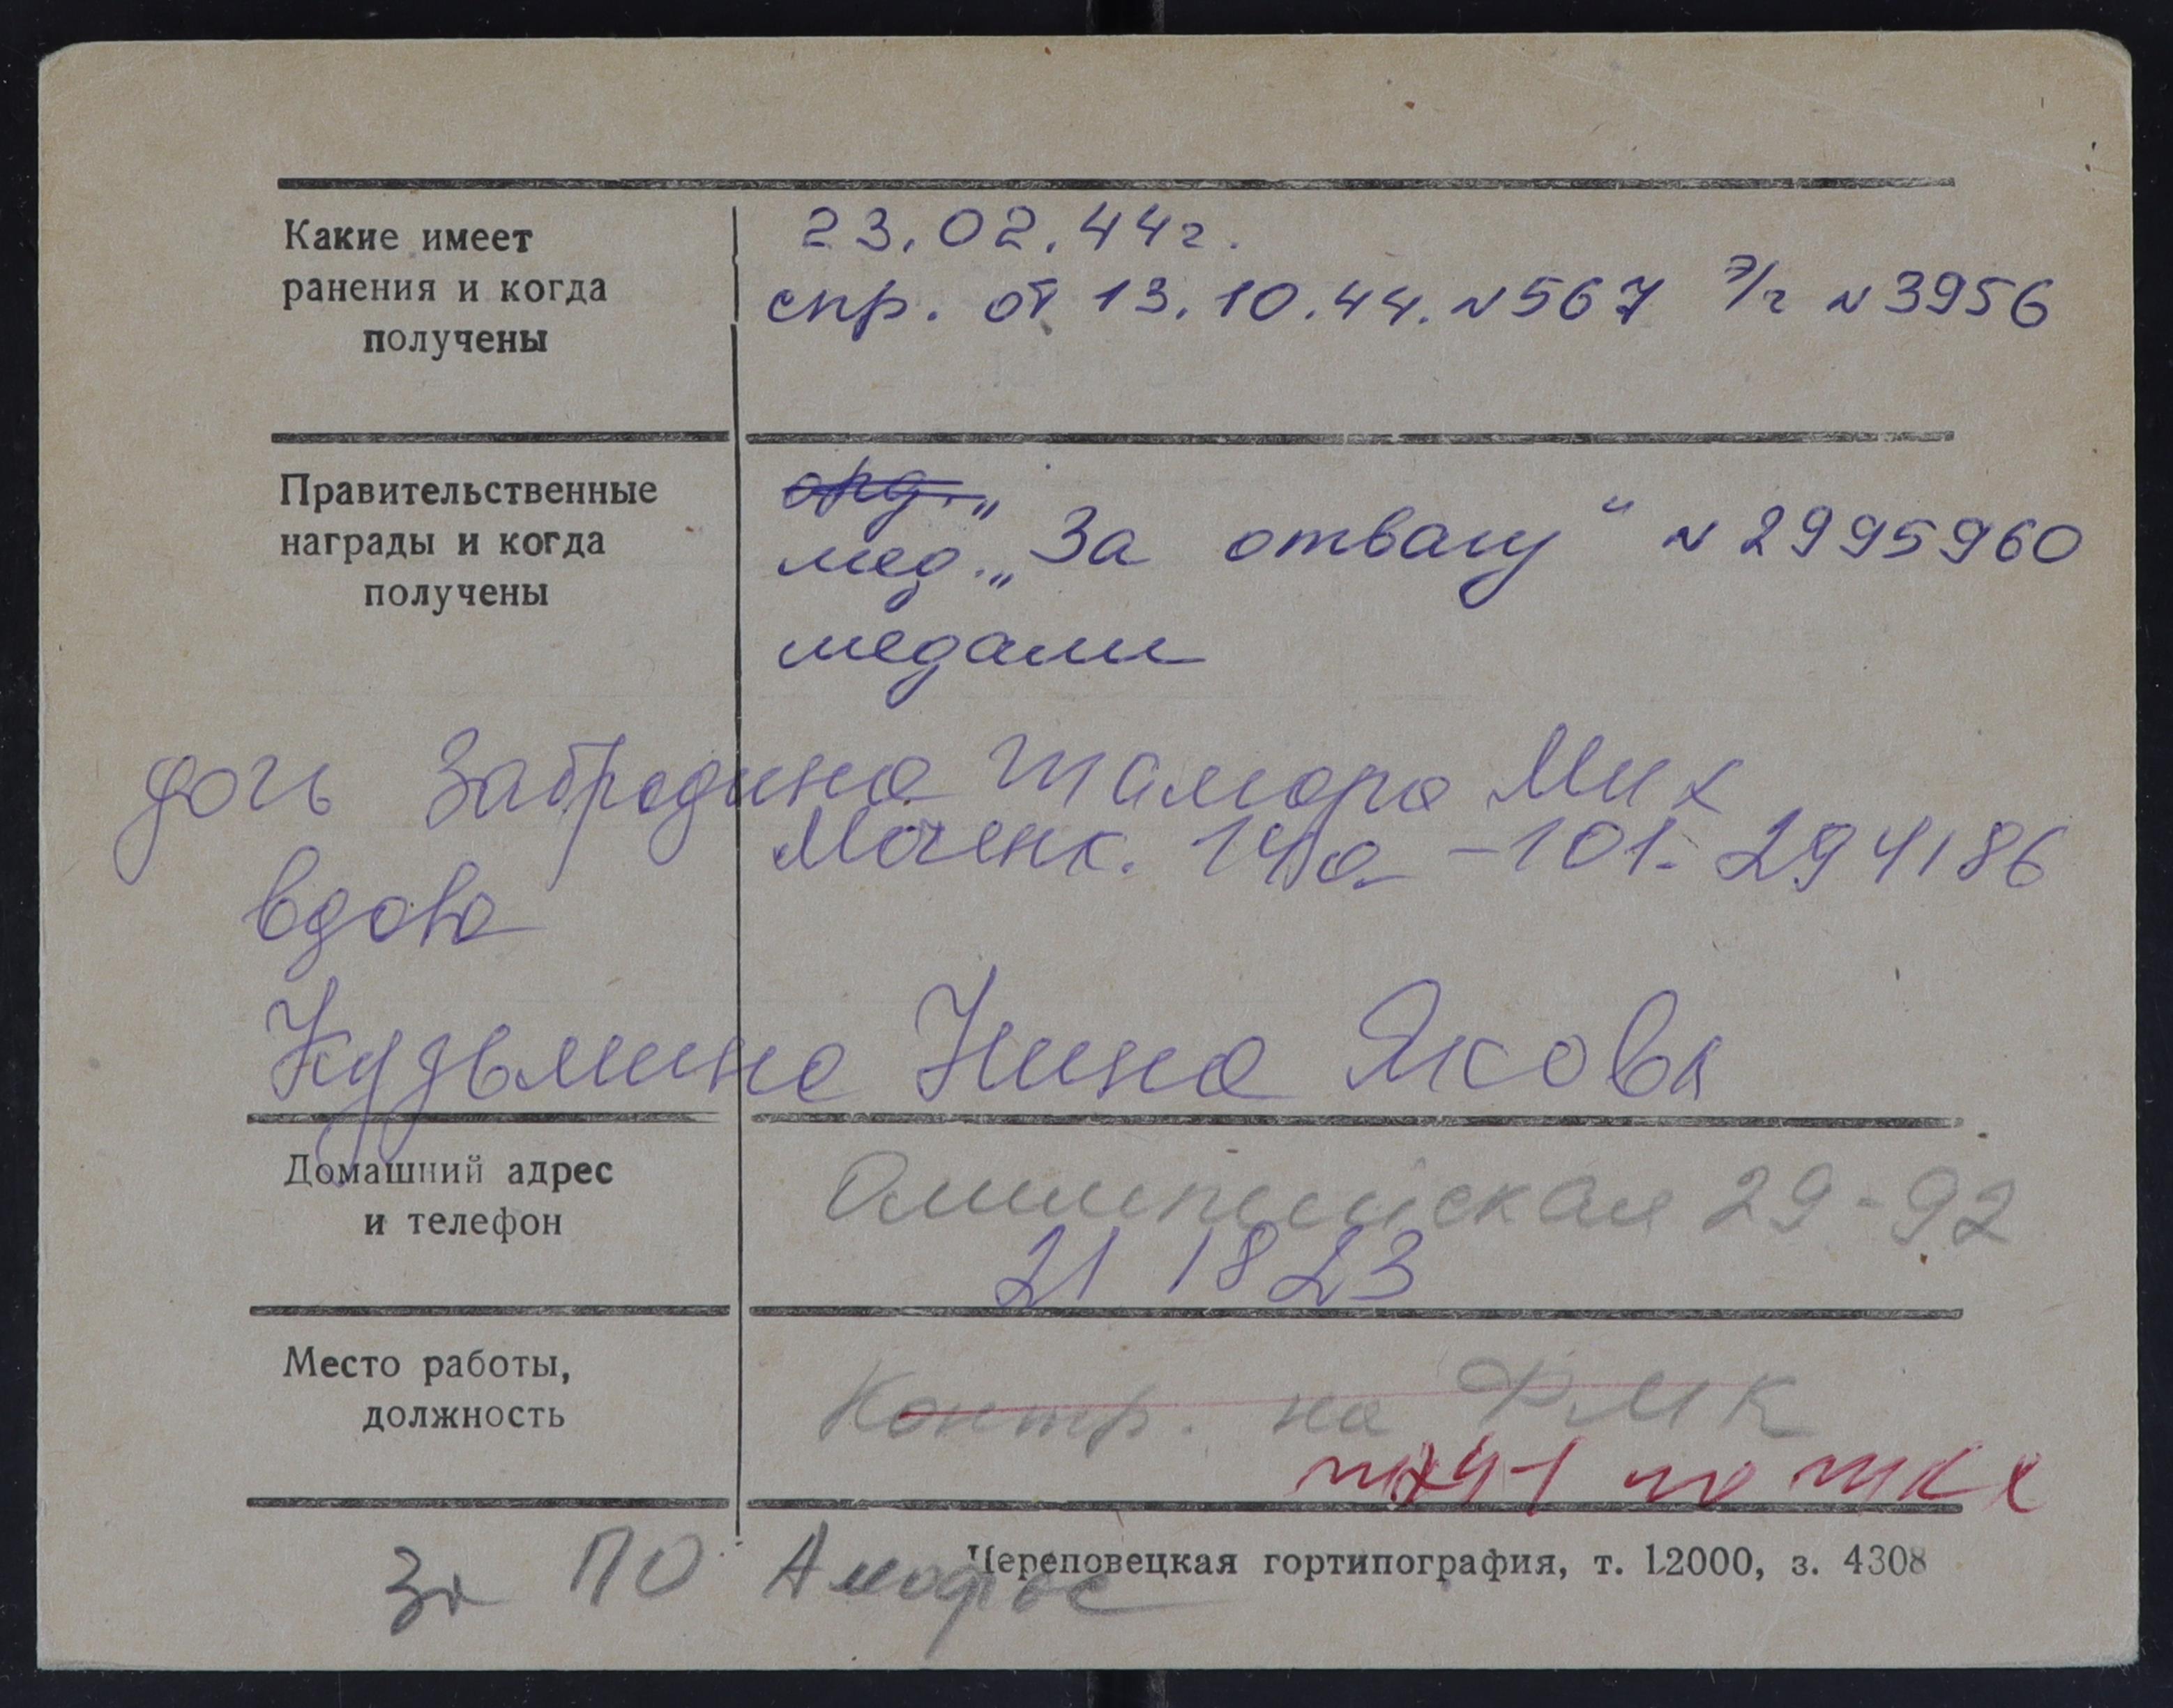 Какие имеет
ранения и когда
получены
23.02.44г.
спр. от 13.10.44. N567 э/г N3956
Правительственные
награды и когда
получены
орд. „
мед. „За отвагу“ N2995960
медали
дочь Забродина Тамара Мих
Моченк. 14а-101. 294186
вдова
Кузьмина Нина Яковл
Домашний адрес
и телефон
Олимпийская 29-92
21 18 23
Место работы,
должность
Контр. на РМК
За ПО Амофос
Череповецкая гортипография, т. 12000, з. 4308